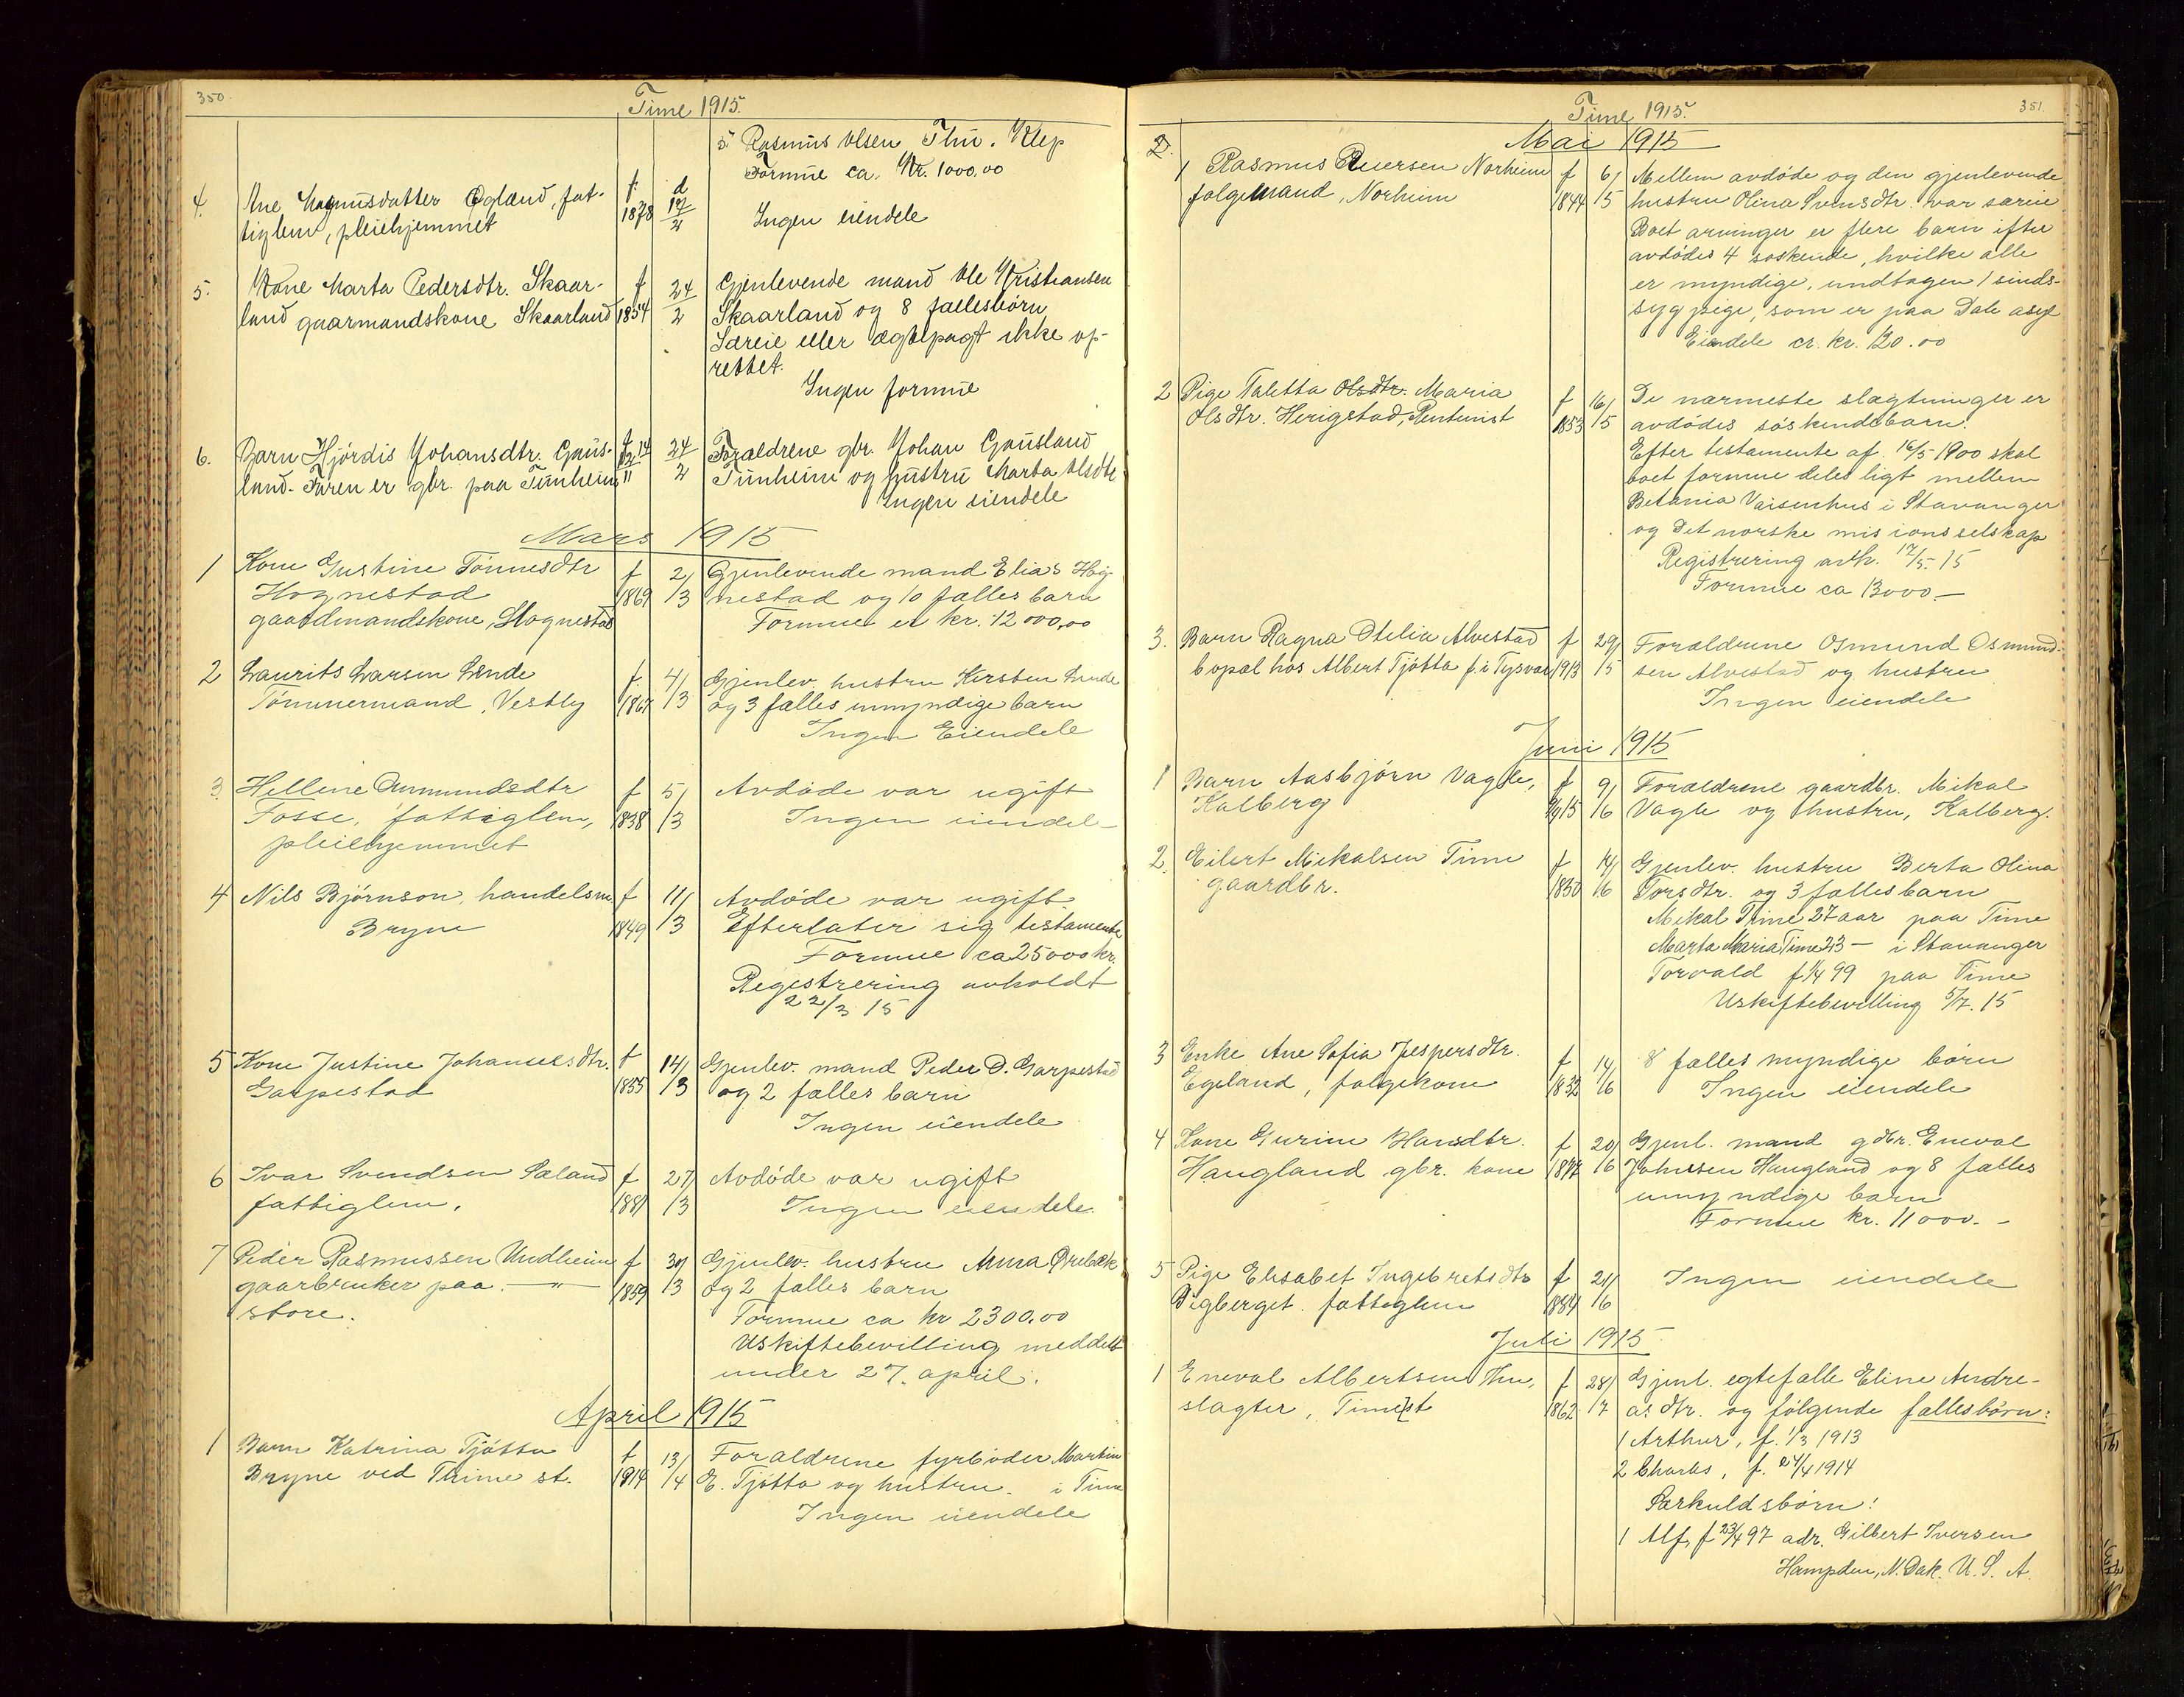 350.
Time 1915.
5 Rasmus Olsen Thu. Klep
Formue ca. Kr. 1000.00
4. Ane Magnusdatter Øgland, fat- f. d
tiglem, pleiehjemmet 1878 19/2 Ingen eiendele
5. Kone Marta Pedersdtr. Skaar- f 24 Gjenlevende mand Ole Kristiansen
land gaarmandskone Skaarland 1854 2 Skaarland og 8 fællesbørn
Særeie eller ægtepagt ikke op-
rettet.
Ingen formue
6. Barn Hjørdis Johansdtr. Gaus- f 14 24 Forældrene gbr. Johan Gausland
land. Faren er gbr. paa Tunheim 11 2 Tunheim og hustru Marta Olsdtr
Ingen eiendele
Mars 1915
1 Kone Gustine Tønnesdtr f 2/ Gjenlevende mand Elias Hog-
Hognestad 1869 /3 nestad og 10 fælles barn
gaardmandskone, Hognestad Formue er kr. 12000,00
2 Laurits Larsen Linde f. 4/ Gjenlev. hustru Kirsten Linde
Tømmermand, Vestly 1867 /3 og 3 fælles umyndige barn
Ingen Eiendele
3. Helline Aamundsdtr f 5/ Avdøde var ugift
Fosse, fattiglem, 1838 /3 Ingen eiendele
pleiehjemmet
4 Nils Bjørnson, handelsm f 11/ Avdøde var ugift.
Bryne 1849 /3 Efterlater sig testamente
Formue ca 25000 kr.
Registrering avholdt
22/3 15
5 Kone Justine Johanesdtr. f 14/ Gjenlev. mand Peder D. Garpestad
Garpestad 1855 /3 og 2 fælles barn
Ingen eiendele
6 Ivar Svendsen Sæland f 27/ Avdøde var ugift
fattiglem. 1881 /3 Ingen eiendele.
7 Peder Rasmussen Undheim f 30/ Gjenlev. hustru Anna Ørebæk
gaarbruker paa — " — 1859 /3 og 2 fælles barn
store. Formue ca kr 2300.00
Uskiftebevilling meddelt
under 27. april.
April 1915
1 Barn Katrina Tjøtta f 13/ Forældrene fyrbøder Martin
Bryne ved Thime st. 1914 /4 E. Tjøtta og hustru. i Time
Ingen eiendele
Time 1915.
351.
2. Mai 1915
1 Rasmus Iversen Norheim f 6/ Mellem avdøde og den gjenlevende
følgemand, Norheim 1844 /5 hustru Olina Svensdtr. var særeie
Boet arvinger er flere barn efter
avdødes 4 søskende, hvilke alle
er myndige, undtagen 1 sinds-
syg pige, som er paa Dale asyl
Eiendele cr. kr. 120.00
2 Pige Taletta Olsdtr. Maria f 16/ De nærmeste slægtninger er
Olsdtr. Herigstad, Rentenist 1853 /5 avdødes søskendebarn.
Efter testamente af 16/5 1900 skal
boet formue deles ligt mellem
Betania Vaisenhus i Stavanger
og Det norske misionsselskap
Registrering avh. 17/5 - 15
Formue ca 13000.—
3. Barn Ragna Otelia Alvestad f 29/ Forældrene Osmund Osmund-
bopæl hos Albert Tjøtta f. i Tysvær 1913 /5 sen Alvestad og hustru
Ingen eiendele
Juni 1915
1 Barn Aasbjørn Vagle, f 9/ Forældrene gaardbr. Mikal
Kalberg 15 /6 Vagle og hustru, Kalberg.
2. Eilert Mikalsen Time f 14/ Gjenlev. hustru Berta Olina
gaardbr. 1850 /6 Torsdtr. og 3 fælles barn
Mikal Time 27 aar paa Time
Marta Maria Time 23 — i Stavanger
Torvald f 1/4 99 paa Time
Uskiftebevilling 5/7. 15
3 Enke Ane Sofia Jespersdtr. f 14/ 8 fælles myndige børn
Egeland, følgekone 1832 /6 Ingen eiendele
4 Kone Gurine Hansdtr. f 20/ Gjenl. mand gdbr. Eneval
Haugland gbr. kone 1877 /6 Johnsen Haugland og 8 fælles
umyndige barn
Formue kr. 11000.-
5 Pige Elisabet Ingebretsdtr f 21/ Ingen eiendele
Sigberget. fattiglem 1884 /6
Juli 1915
1 Eneval Albertsen Thu, f 28/ Gjenl. egtefælle Eline Andre-
slagter, Time st 1862 /7 asdtr. og følgende fællesbørn:
1 Arthur, f. 1/3 1913
2 Charles, f. 24/4 1914
Særkuldsbørn:
1 Alf, f 23/4 97 adr. Gilbert Iversen
Hampden, N. Dak. U. S. A.